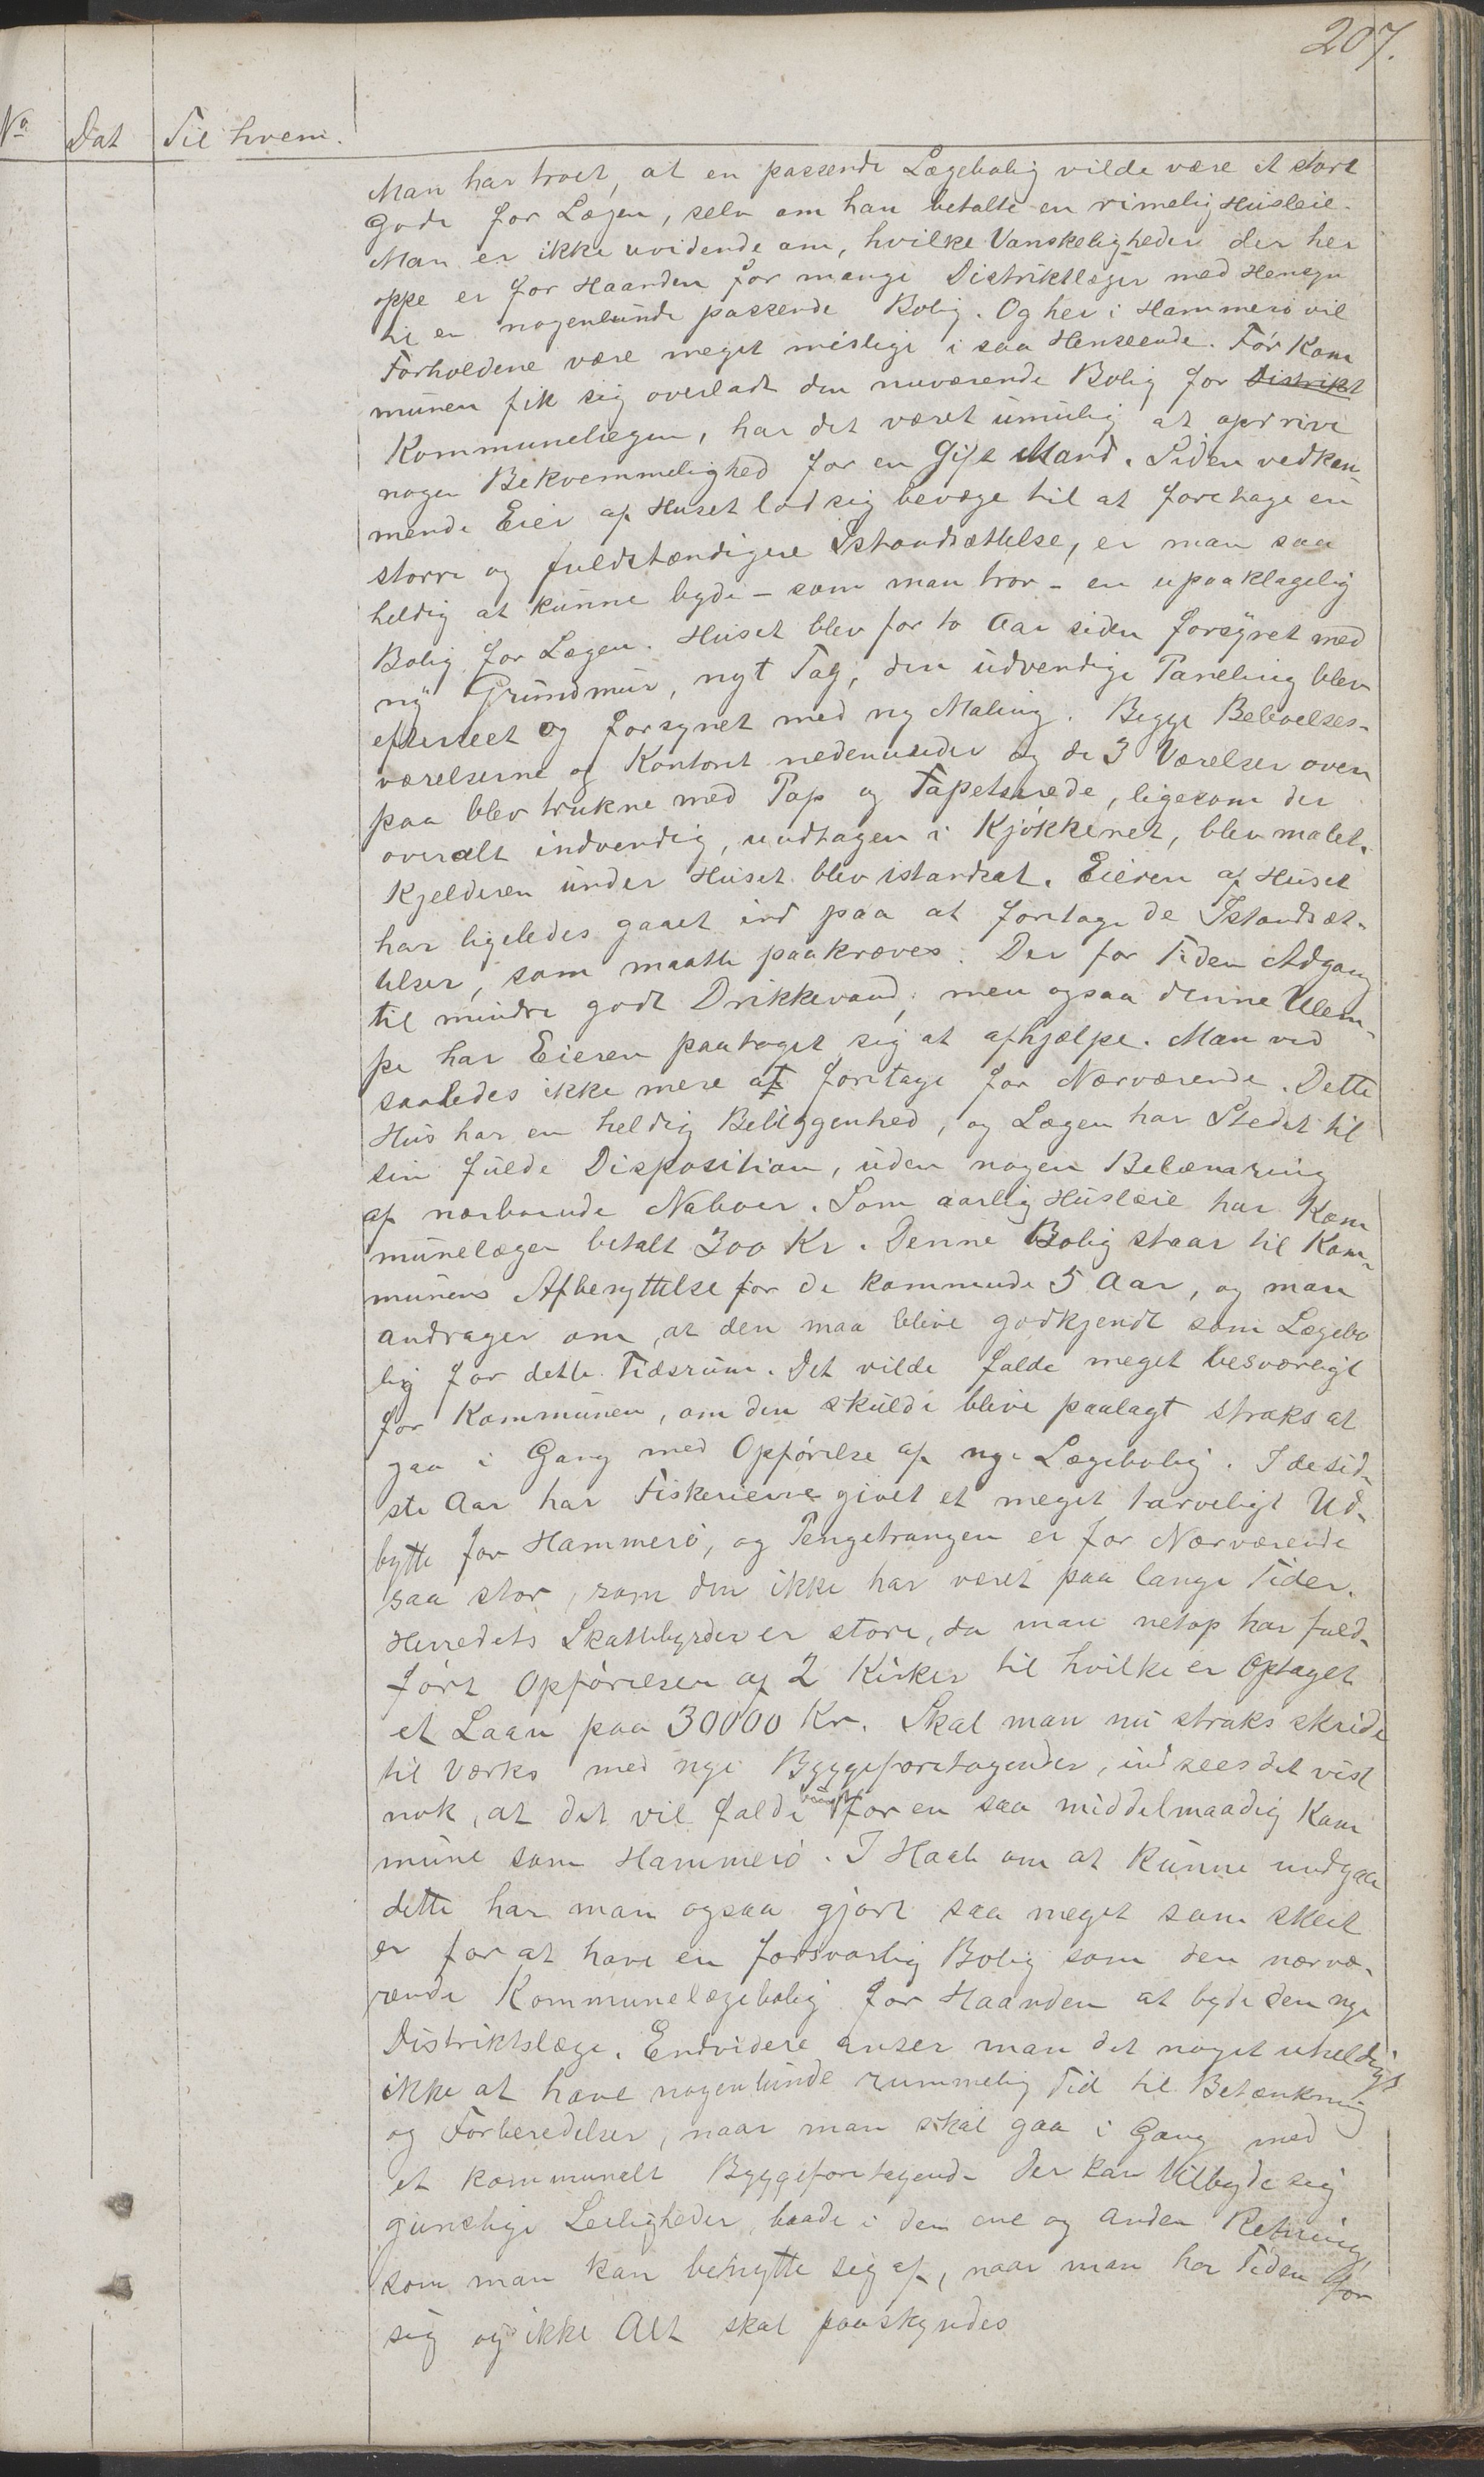 207.
No Dat Til hvem.
Man har troet, at en passende Lægebolig vilde være et stort
Gode for Lægen, selv om han betalte en rimelig Husleie.
Man er ikke uvidende om, hvilke Vanskeligheder der her
oppe er for Haanden for mange Distriktslæger med Hensyn
til en nogenlunde passende Bolig. Og her i Hammerö vil
Forholdene være meget mislige i saa Henseende. Før Kom
munen fik sig overladt den nuværende Bolig for Distrikt
Kommunelægen, har det været umulig at opdrive
nogen Bekvemmelighed for en Gift Mand. Siden vedkom
mende Eier af Huset lod sig bevæge til at foretage en
større og fuldstændigere Istandsættelse, er man saa
heldig at kunne byde - som man tror - en upaaklagelig
Bolig for Lægen. Huset blev for to Aar siden forsynet med
ny Grundmur, nyt Tag, den udvendige Paneling blev
efterseet og forsynet med ny Maling. Begge Beboelses-
værelserne og Kontoret nedenunder og de 3 Værelser oven
paa blev trukne med Pap og Tapetserede, ligesom der
overalt indvendig, undtagen i Kjøkkenet, blev malet.
Kjelderen under Huset blev istandsat. Eieren af Huset
har ligeledes gaaet ind paa at foretage de Istandsæt-
telser, som maatte paakræves. Der for Tiden Adgang
til mindre godt Drikkevand, men ogsaa denne Ulem-
pe har Eieren paataget sig at afhjælpe. Man ved
saaledes ikke mere at foretage for Nærværende. Dette
Hus har en heldig Beliggenhed, og Lægen har Stedet til
sin fulde Disposition, uden nogen Belemring
af nærboende Naboer. Som aarlig Husleie har Kom
munelægen betalt 300 Kr. Denne Bolig staar til Kom-
munens Afbenyttelse for de kommende 5 Aar, og man
andrager om, at den maa blive godkjendt som Lægebo
lig for dette Tidsrum. Det vilde falde meget besværligt
for Kommunen, om den skulde blive paalagt straks at
gaa i Gang med Opførelse af nye Lægebolig. I de sid-
ste Aar har Fiskerierne givet et meget tarveligt Ud-
bytte for Hammerö, og Pengetrangen er for Nærværende
saa stor, som den ikke har været paa lange Tider.
Herredets Skattebyrder er store, da man netop har fuld-
ført Opførelsen af 2 Kirker til hvilke er Optaget
et Laan paa 30000 Kr. Skal man nu straks skride
til Værks med nye Byggeforetagender, indsees det vist
nok, at det vil falde for en saa middelmaadig Kom
mune som Hammerö. I Haab om at kunne undgaa
dette har man ogsaa gjort saa meget som skeet
er for at have en forsvarlig Bolig som den nærvæ-
rende Kommunelægebolig for Haanden at byde den nye
Distriktslæge. Endvidere anser man det noget uheldigt
ikke at have nogenlunde rummelig Tid til Betænkning
og Forberedelser, naar man skal gaa i Gang med
et kommunalt Byggeforetagende. Der kan tilbyde sig
gunstige Leiligheder, baade i den ene og anden Retning,
som man kan benytte sig af, naar man har Tiden for
sig og ikke Alt skal paaskyndes